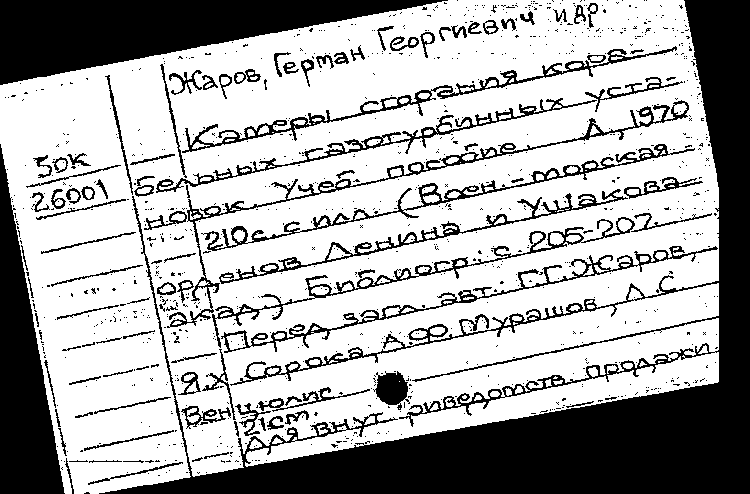 Жаров, Герман Георгиевич и др.
Камеры сгорания кора-
50к
бельных газотурбинных уста-
26001
новок. Учеб. пособие. Л., 1970
210с. с илл. (Воен.-морская
орденов Ленина и Ушакова
акад.). Библиогр.: с. 205-207.
Перед загл. авт.: Г.Г. Жаров,
Я.Х. Сорока, А.Ф. Мурашов, Л.С.
Венцюлис.
21см.
Для внут риведомств. продажи